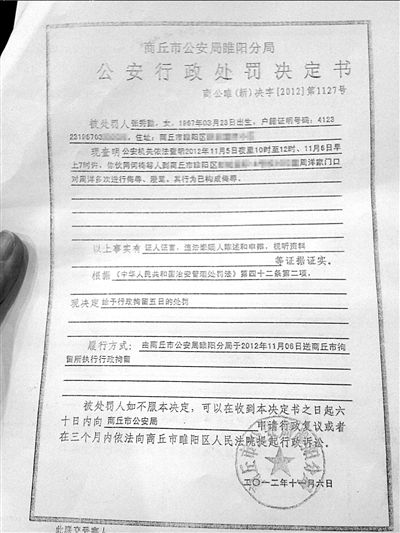 商丘市公安局睢阳分局
公安行政处罚决定书
商公睢(新)决字[2012]第1127号
被处罚人张秀勤,女,1967年03月23日出生,户籍证明号码:4123
23196703 住址:商丘市睢阳区
现查明公安机关依法查明2012年11月5日夜里10时至12时、11月6日早
上7时许,你伙同何秀等人到商丘市睢阳区 周洋家门口
对周洋多次进行侮辱、谩骂,其行为已构成侮辱。
以上事实有 证人证言,违法嫌疑人陈述和申辩,视听资料
等证据证实。
根据《中华人民共和国治安管理处罚法》第四十二条第二项,
现决定 给予行政拘留五日的处罚
履行方式:由商丘市公安局睢阳分局于2012年11月06日送商丘市拘
留所执行行政拘留
被处罚人如不服本决定,可以在收到本决定书之日起六
十日内向 商丘市公安局 申请行政复议或者
在三个月内依法向商丘市睢阳区人民法院提起行政诉讼。
商丘市公安局睢阳分局
二〇一二年十一月六日